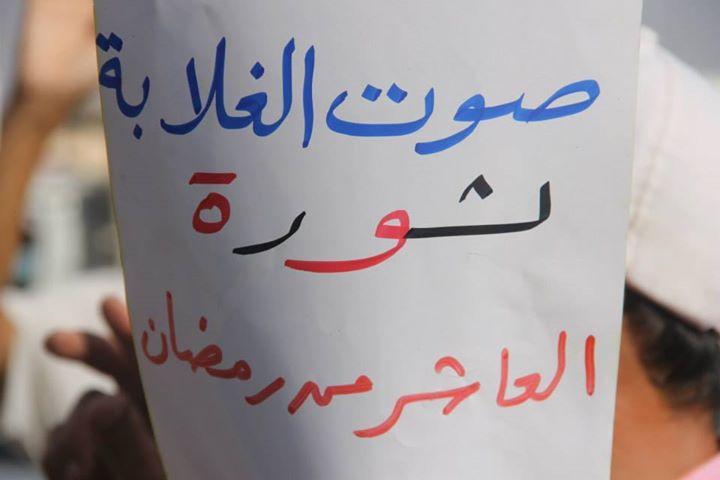 صوت الغلابة
ثورة
العاشر من رمضان